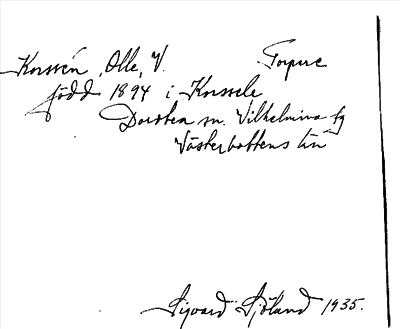 Korssén, Olle, V. Torpare
född 1894 i Korssele
Dorotea sn. Vilhelmina tg
Västerbottens län
Sigvard Sjöland 1935.